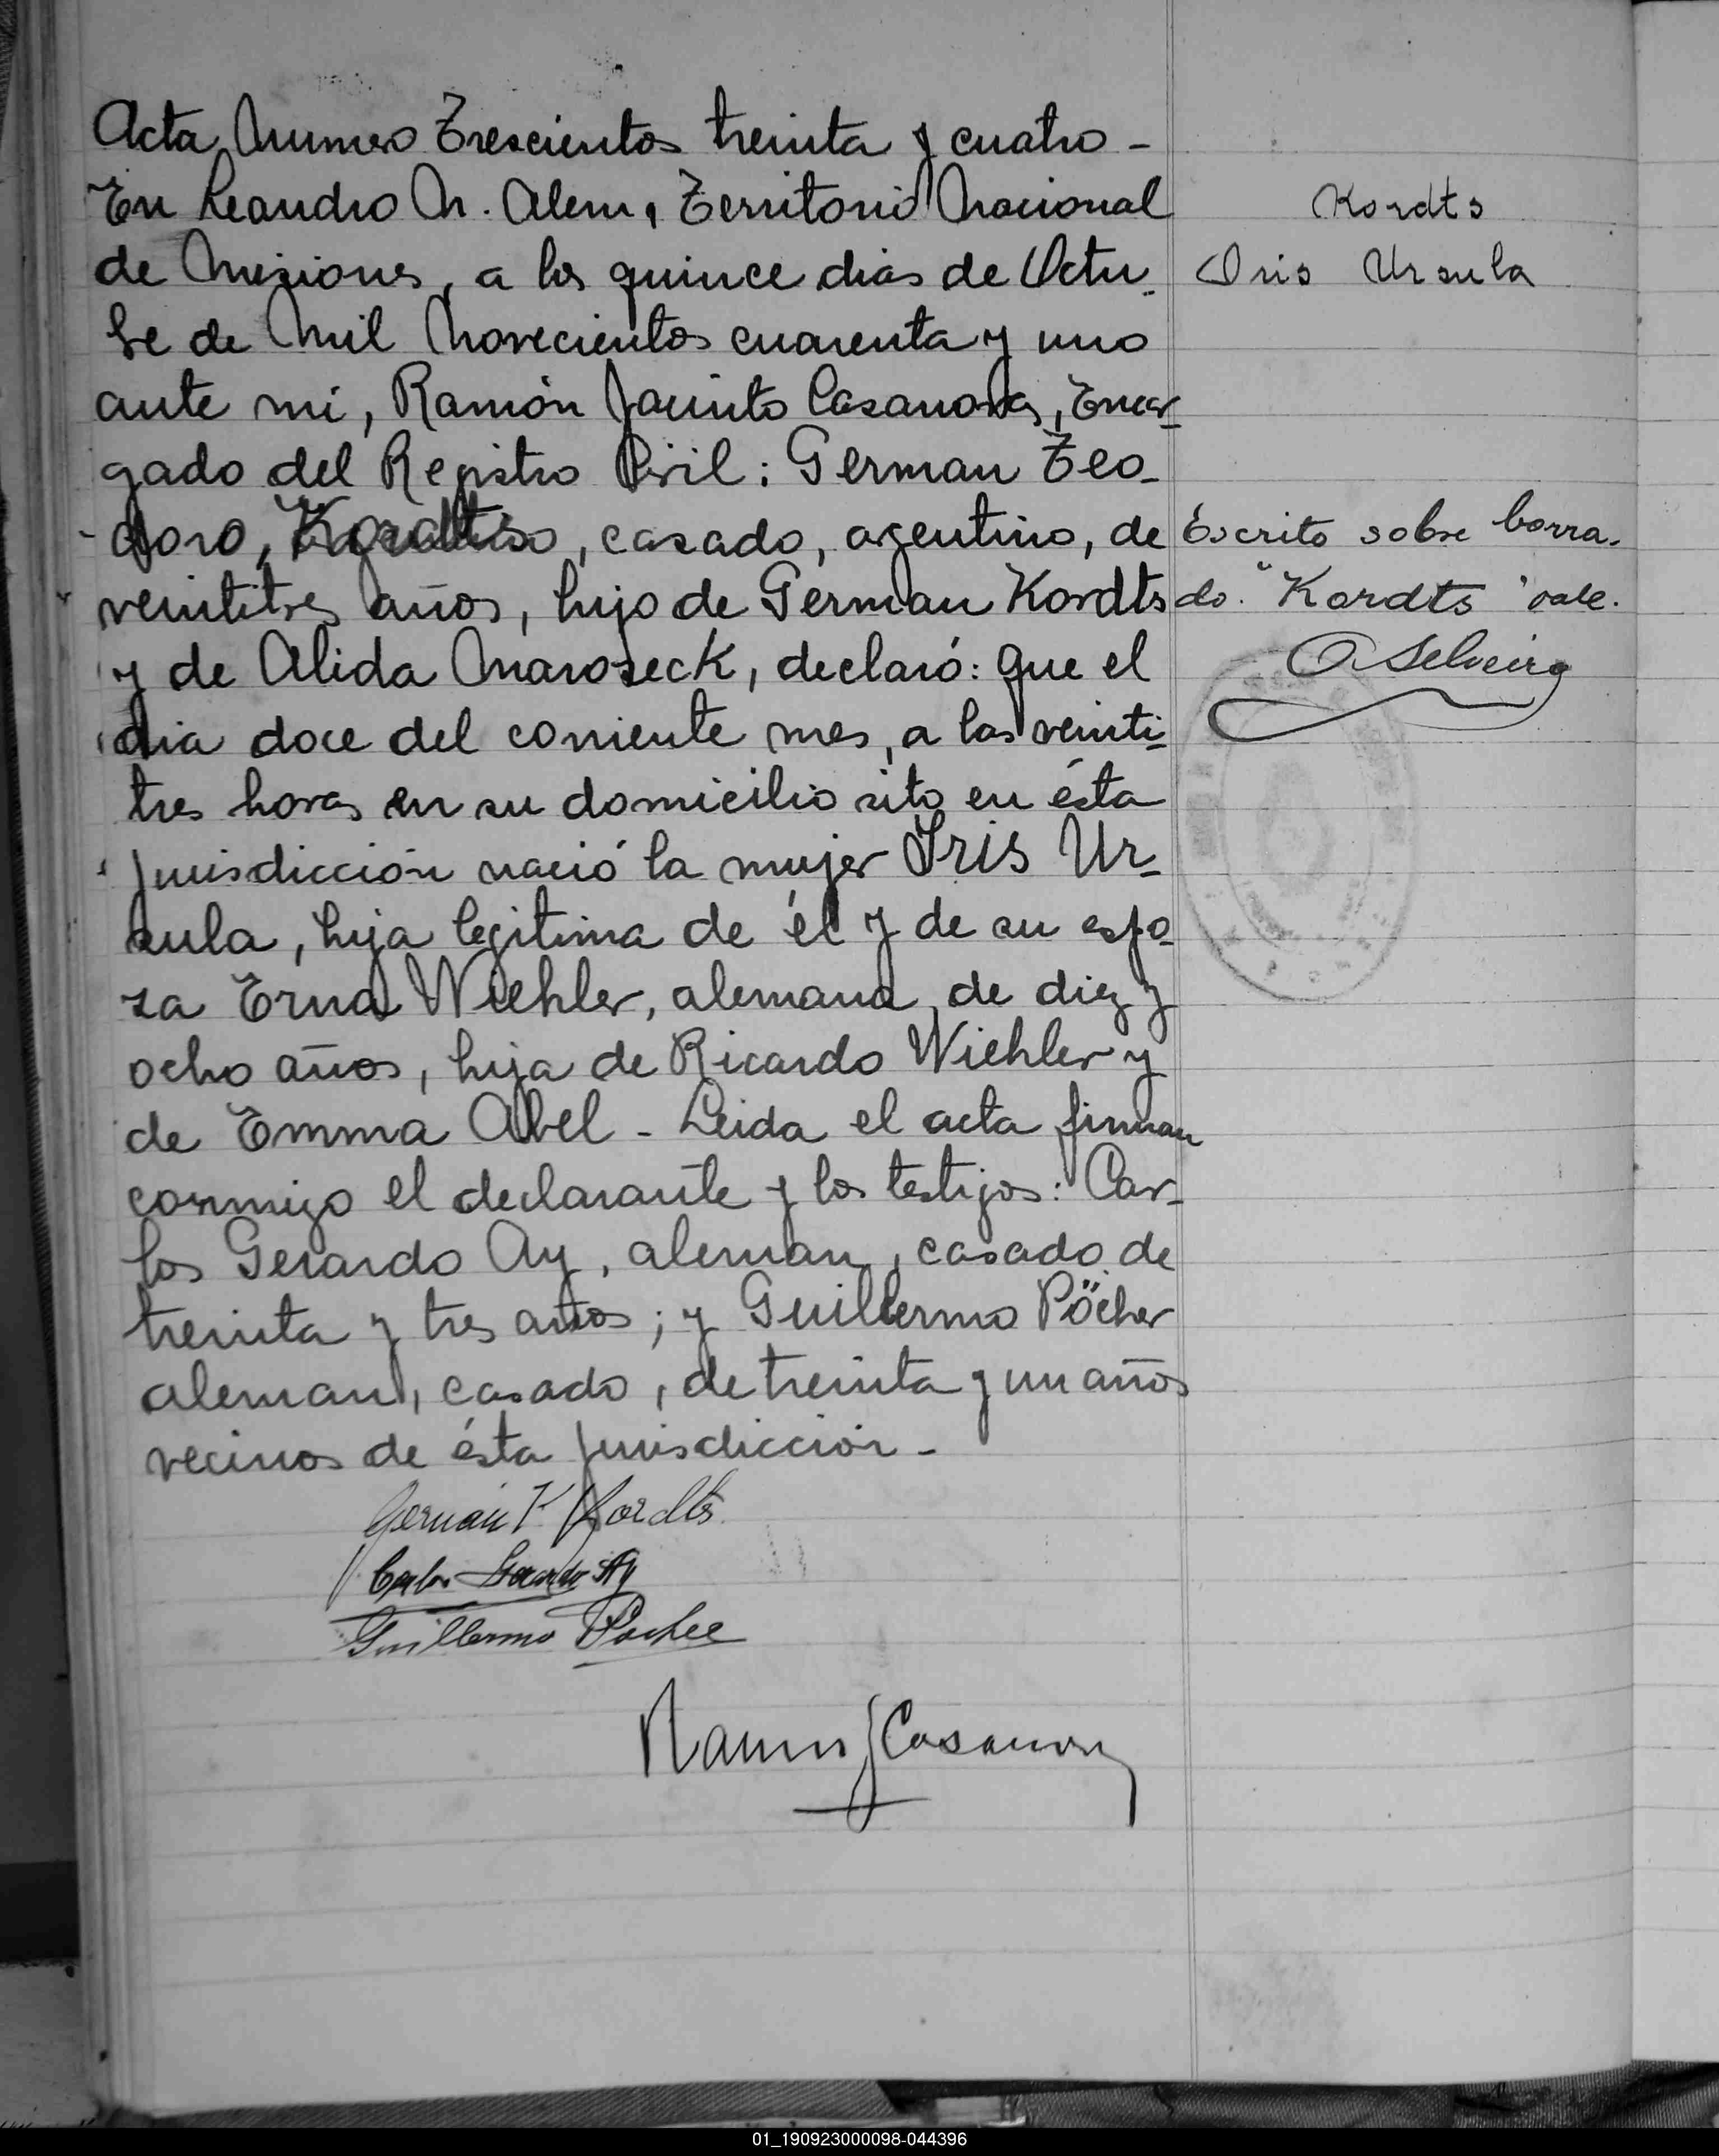 Acta Numero Trescientos treinta y cuatro -
En Leandro N. Alem, Territorio Nacional
de Misiones, a los quince dias de Octu-
bre de Mil Novecientos cuarenta y uno
ante mi, Ramón Jacinto Casanova, Encar-
gado del Registro Civil: German Teo-
doro, Kordts, casado, argentino, de
veintitres años, hijo de German Kordts
y de Alida Maroseck, declaró: que el
dia doce del corriente mes, a las veinti-
tres horas en su domicilio sito en ésta
Jurisdicción nació la mujer Iris Ur-
sula, hija legitima de él y de su espo-
sa Erna Wiehler, alemana, de diez y
ocho años, hija de Ricardo Wiehler y
de Emma Abel - Leida el acta firman
conmigo el declarante y los testigos: Car-
los Gerardo Ay, aleman, casado, de
treinta y tres años; y Guillermo Pöcher
aleman, casado, de treinta y un años
vecinos de ésta Jurisdicción -
German T. Kordts
Carlos Gerardo Ay
Guillermo Pöcher
Ramon J Casanova
Kordts
Iris Ursula
Escrito sobre borra-
do. "Kordts" vale.
01_190923000098-044396